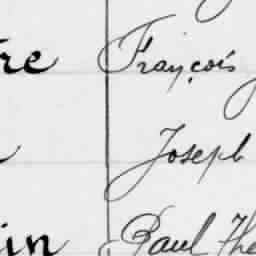 re François
Joseph
in Paul The